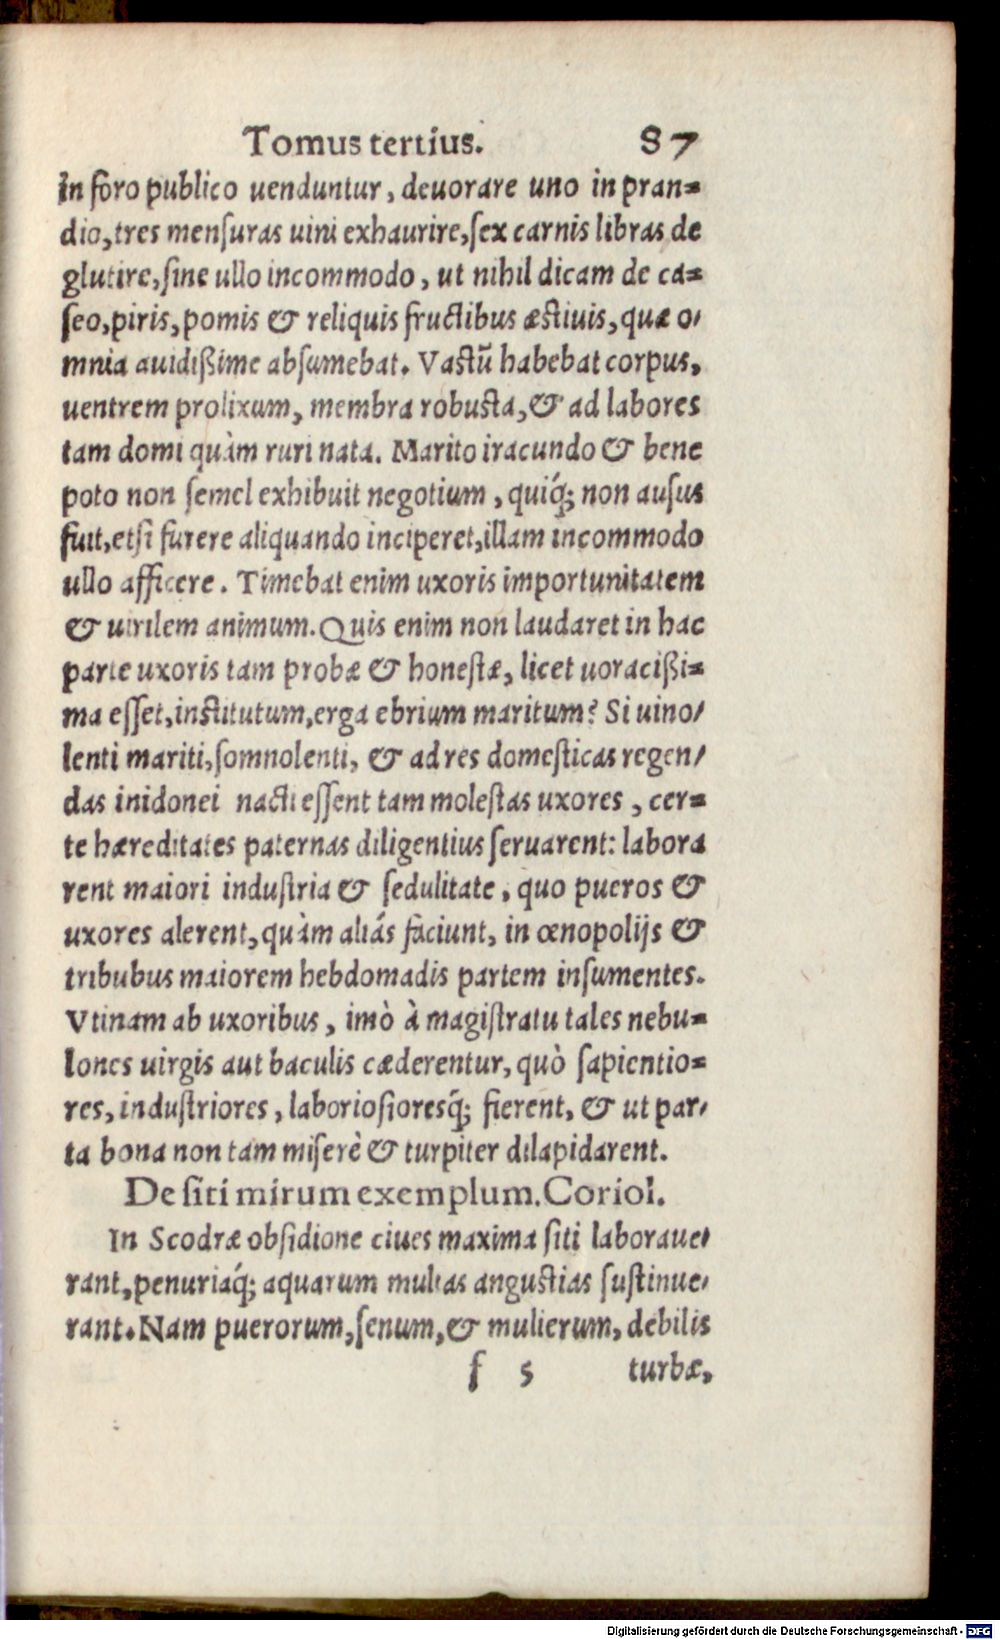 Tomus tertius. 87
In foro publico uenduntur, deuorare uno in pran=
dio, tres mensuras uini exhaurire, sex carnis libras de
glutire, sine ullo incommodo, ut nihil dicam de ca=
seo, piris, pomis & reliquis fructibus æstiuis, quæ o/
mnia auidißime absumebat. Vastũ habebat corpus,
uentrem prolixum, membra robusta, & ad labores
tam domi quàm ruri nata. Marito iracundo & bene
poto non semel exhibuit negotium, quiq́; non ausus
fuit, etsi furere aliquando inciperet, illam incommodo
ullo afficere. Timebat enim uxoris importunitatem
& uirilem animum. Quis enim non laudaret in hac
parte uxoris tam probæ & honestæ, licet uoracißi=
ma esset, institutum, erga ebrium maritum? Si uino/
lenti mariti, somnolenti, & ad res domesticas regen/
das inidonei nacti essent tam molestas uxores, cer=
te hæreditates paternas diligentius seruarent: labora
rent maiori industria & sedulitate, quo pueros &
uxores alerent, quàm aliás faciunt, in œnopolijs &
tribubus maiorem hebdomadis partem insumentes.
Vtinam ab uxoribus, imò à magistratu tales nebu=
lones uirgis aut baculis cæderentur, quò sapientio=
res, industriores, laboriosioresq́; fierent, & ut par/
ta bona non tam miserè & turpiter dilapidarent.
De siti mirum exemplum. Coriol.
In Scodræ obsidione ciues maxima siti laboraue/
rant, penuriaq́; aquarum multas angustias sustinue/
rant. Nam puerorum, senum, & mulierum, debilis
f 5 turbæ,
Digitalisierung gefördert durch die Deutsche Forschungsgemeinschaft - DFG